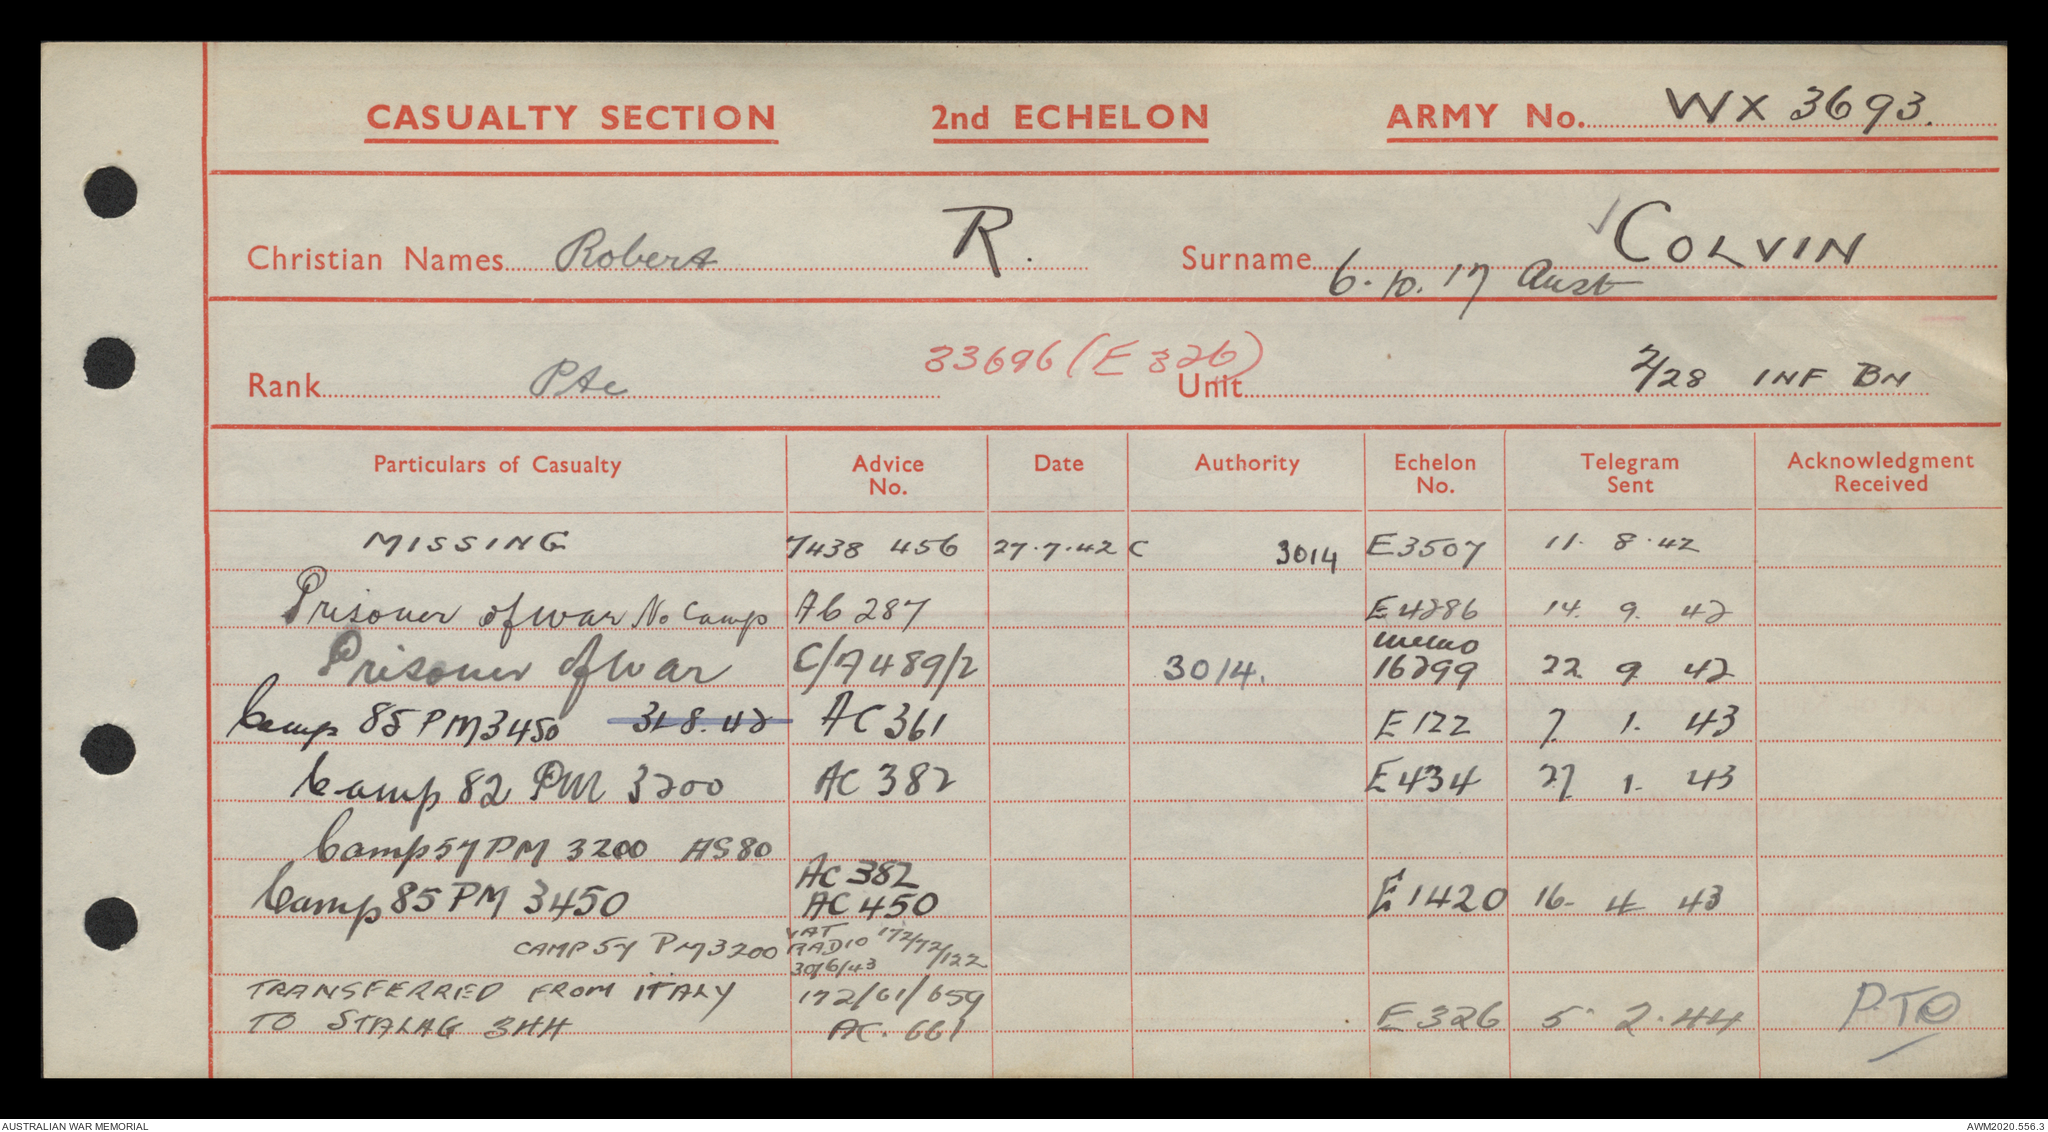 CASUALTY SECTION 2nd ECHELON ARMY No. WX 3693.
Christian Names Robert R. Surname COLVIN
6.10.17 Aust
33696 (E 326)
Rank Pte Unit 2/28 INF BN
Particulars of Casualty Advice No. Date Authority Echelon No. Telegram Sent Acknowledgment Received
MISSING 7438 456 27.7.42 C 3014 E3507 11. 8. 42
Prisoner of war No Camp Ab 287 E4286 14. 9. 42
Prisoner of War C/A489/2 3014. memo 16299 22 9 42
Camp 85 PM 3450 31.8.42 AC 361 E 122 7. 1. 43
Camp 82 PM 3200 AC 382 E 434 27 1. 43
Camp 57 PM 3200 AS80
AC 382
Camp 85 PM 3450 AC 450 E 1420 16- 4 43
CAMP 57 PM 3200 VAT RADIO 172/72/122 30/6/43
TRANSFERRED FROM ITALY 172/61/659
TO STALAG 3HH AC. 661 E 326 5. 2. 44 PTO
AUSTRALIAN WAR MEMORIAL AWM2020.556.3